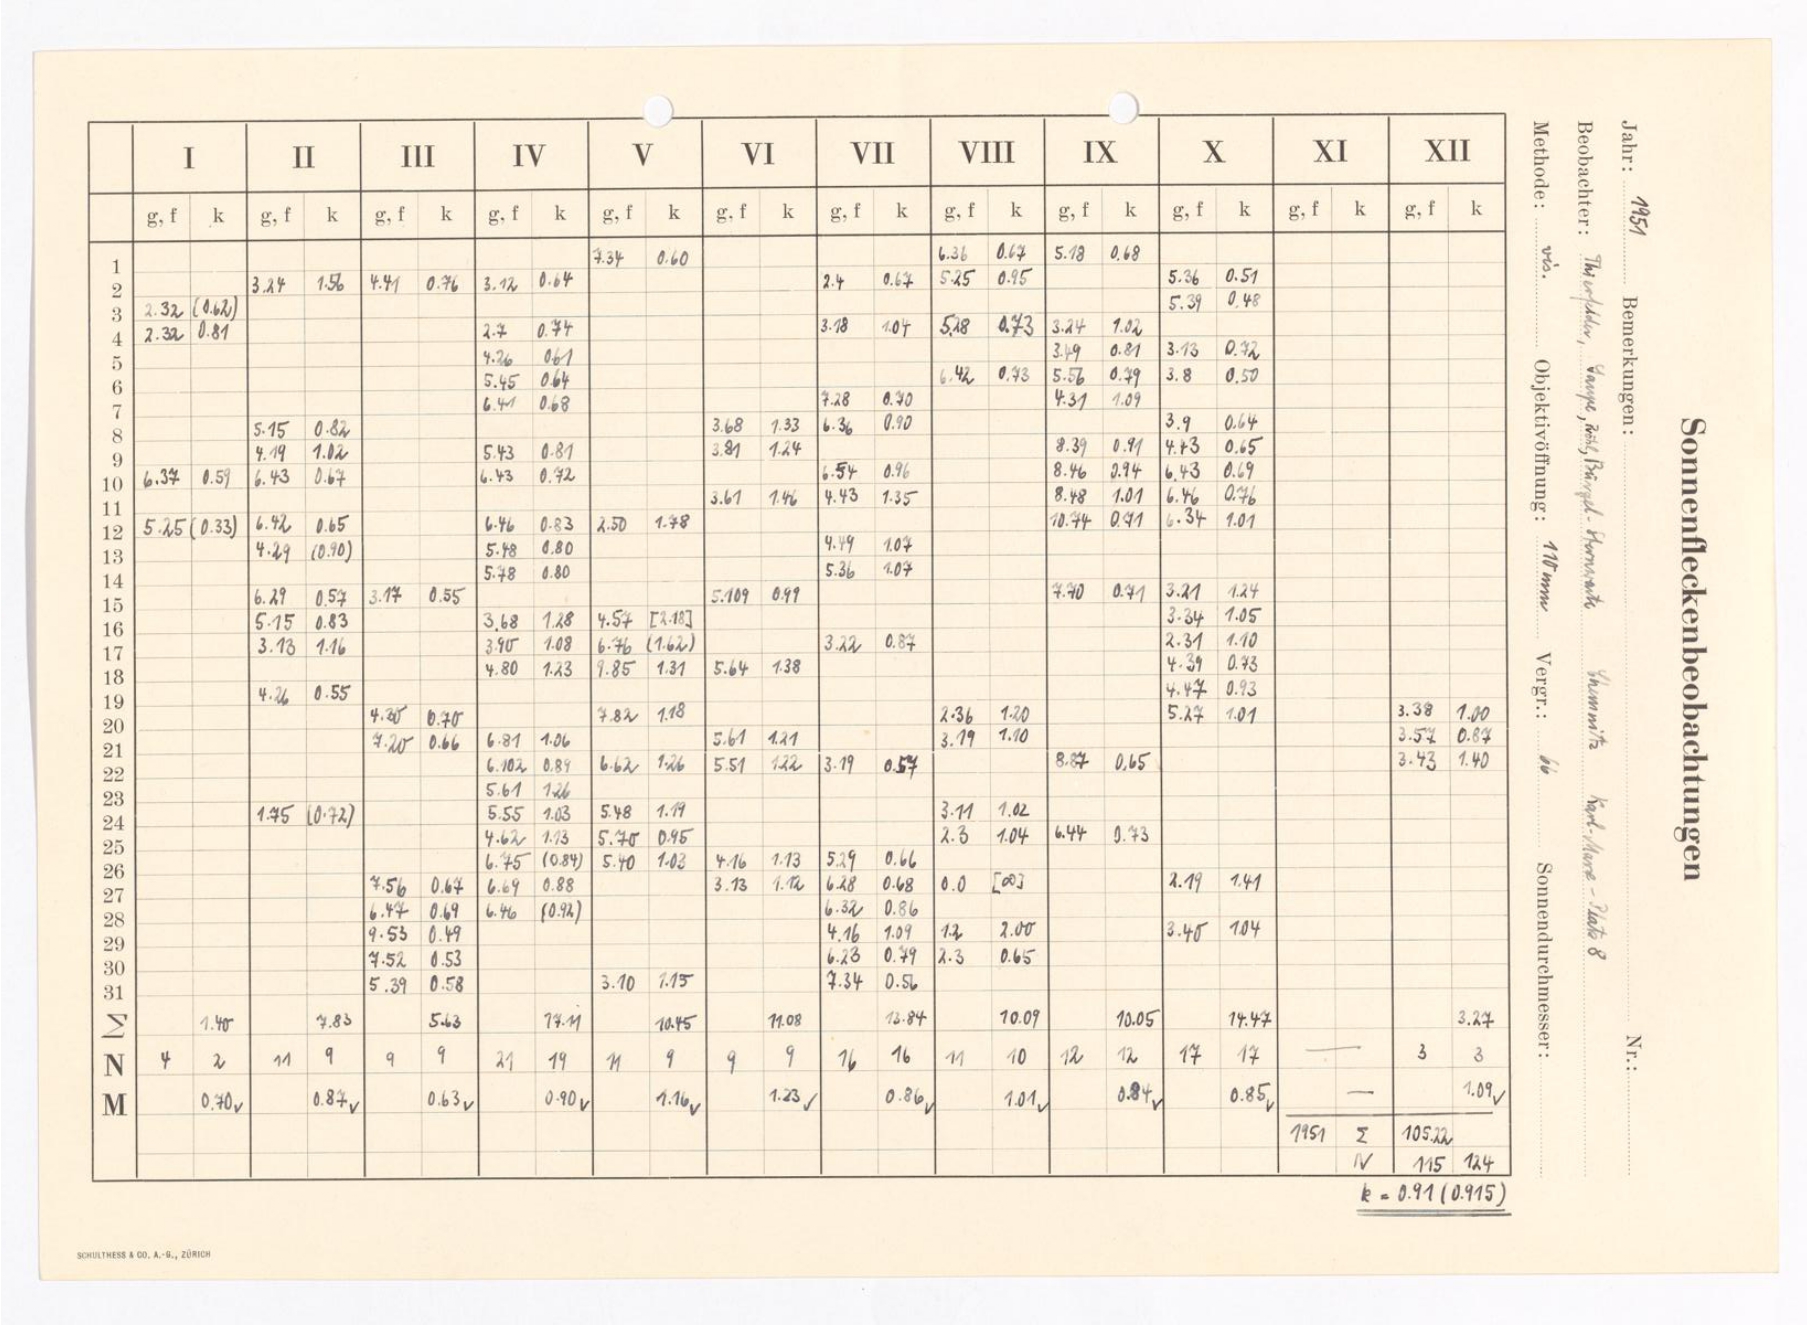 Sonnenfleckenbeobachtungen
Jahr: 1951 Bemerkungen: Nr.:
Beobachter: Karl-Marx-Platz 8
Methode: vis. Objektivöffnung: 110 mm Vergr.: 66 Sonnendurchmesser:
I II III IV V VI VII VIII IX X XI XII
g, f k g, f k g, f k g, f k g, f k g, f k g, f k g, f k g, f k g, f k g, f k g, f k
1 7.34 0.60 6.36 0.67 5.18 0.68
2 3.24 1.56 4.41 0.76 3.12 0.64 2.4 0.67 5.25 0.95 5.36 0.51
3 2.32 (0.62) 5.39 0.48
4 2.32 0.81 2.7 0.74 3.18 1.04 5.28 0.73 3.24 1.02
5 4.26 0.61 3.49 0.81 3.13 0.72
6 5.45 0.64 6.42 0.73 5.56 0.79 3.8 0.50
7 6.41 0.68 7.28 0.70 4.31 1.09
8 5.15 0.82 3.68 1.33 6.36 0.90 3.9 0.64
9 4.19 1.02 5.43 0.81 3.81 1.24 8.39 0.91 4.43 0.65
10 6.37 0.59 6.43 0.67 6.43 0.72 6.54 0.96 8.46 0.94 6.43 0.69
11 3.61 1.46 4.43 1.35 8.48 1.01 6.46 0.76
12 5.25 (0.33) 6.42 0.65 6.46 0.83 2.50 1.78 10.74 0.71 6.34 1.01
13 4.29 (0.90) 5.48 0.80 4.49 1.07
14 5.78 0.80 5.36 1.07
15 6.29 0.57 3.17 0.55 5.109 0.99 7.70 0.71 3.21 1.24
16 5.15 0.83 3.68 1.28 4.57 [2.18] 3.34 1.05
17 3.13 1.16 3.90 1.08 6.76 (1.62) 3.22 0.87 2.31 1.10
18 4.80 1.23 9.85 1.31 5.64 1.38 4.39 0.73
19 4.26 0.55 4.47 0.93
20 4.20 0.70 7.82 1.18 2.36 1.20 5.27 1.01 3.38 1.00
21 7.20 0.66 6.81 1.06 5.61 1.21 3.19 1.10 3.57 0.87
22 6.102 0.89 6.62 1.26 5.51 1.22 3.19 0.57 8.87 0.65 3.43 1.40
23 5.61 1.26
24 1.75 (0.72) 5.55 1.03 5.48 1.19 3.11 1.02
25 4.62 1.13 5.70 0.95 2.3 1.04 6.44 0.73
26 6.75 (0.84) 5.40 1.03 4.16 1.13 5.29 0.66
27 7.56 0.67 6.69 0.88 3.13 1.12 6.28 0.68 0.0 [∞] 2.19 1.41
28 6.47 0.69 6.46 (0.92) 6.32 0.86
29 9.53 0.49 4.16 1.09 1.2 2.00 3.40 1.04
30 7.52 0.53 6.23 0.79 2.3 0.65
31 5.39 0.58 3.10 1.15 7.34 0.56
Σ 1.40 7.83 5.63 17.11 10.45 11.08 13.84 10.09 10.05 14.47 3.27
N 4 2 11 9 9 9 21 19 11 9 9 9 16 16 11 10 12 12 17 17 — 3 3
M 0.70✓ 0.87✓ 0.63✓ 0.90✓ 1.16✓ 1.23✓ 0.86✓ 1.01✓ 0.84✓ 0.85✓ — 1.09✓
1951 Σ 105.22
N 115 124
k = 0.91 (0.915)
SCHULTHESS & CO. A.-G., ZÜRICH